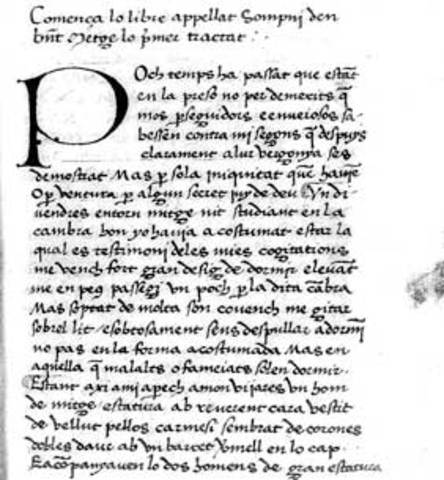 Comença lo libre appellat Sompni den
bn̄t Metge lo p̄mer tractat :
Poch temps ha passat que estāt
en la preso no per demerits q̄
mos p̱seguidors e envejosos sa-
bessen contra mi segons q̄ despuys
clarament a lur vergonya ses
demostrat Mas p̱ sola iniquitat que havi̅e
O p̱ ventura p̱ algun secret juy de deu Un di-
vendres entorn mitge nit studiant en la
cambra hon yo havia acostumat estar la
qual es testimoni deles mies cogitations
me vench fort gran desig de dormir e levāt
me en peus passegi un poch p̱ la dita cābra
Mas soptat de molta son covench me gitar
sobrel lit e sobtosament sens despullar adormi
no pas en la forma acostumada Mas en
aquella q̄ malalts o fameiats solen dormir.
Estant axi ami aperch amon vijares un hom
de mitge estatura ab reverent cara vestit
de vellut pellos carmesi sembrat de corones
dobles daur ab un barret vmell en lo cap.
E acōpanyaven lo dos homens de gran estatura